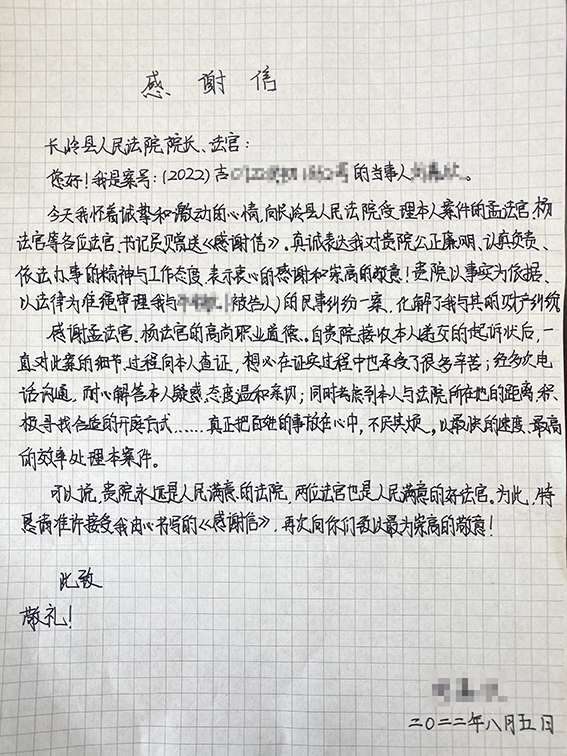 感谢信
长岭县人民法院院长、法官:
您好!我是案号:(2022)吉 的当事人 。
今天我怀着诚挚和激动的心情,向长岭县人民法院受理本人案件的孟法官、杨
法官等各位法官、书记员赠送《感谢信》。真诚表达我对贵院公正廉明、认真负责、
依法办事的精神与工作态度,表示衷心的感谢和崇高的敬意!贵院以事实为依据、
以法律为准绳审理我与 (被告人)的民事纠纷一案,化解了我与其的财产纠纷
感谢孟法官、杨法官的高尚职业道德。自贵院接收本人递交的起诉状后,一
直对此案的细节、过程向本人查证,想必在证实过程中也承受了很多辛苦;经多次电
话沟通,耐心解答本人疑惑,态度温和亲切;同时考虑到本人与法院所在地的距离,积
极寻找合适的开庭方式……真正把百姓的事放在心中,不厌其烦。以最快的速度、最高
的效率处理本案件。
可以说,贵院永远是人民满意的法院,两位法官也是人民满意的好法官。为此,特
恳请准许接受我由心书写的《感谢信》,再次向你们致以最为崇高的敬意!
此致
敬礼!
二〇二二年八月五日